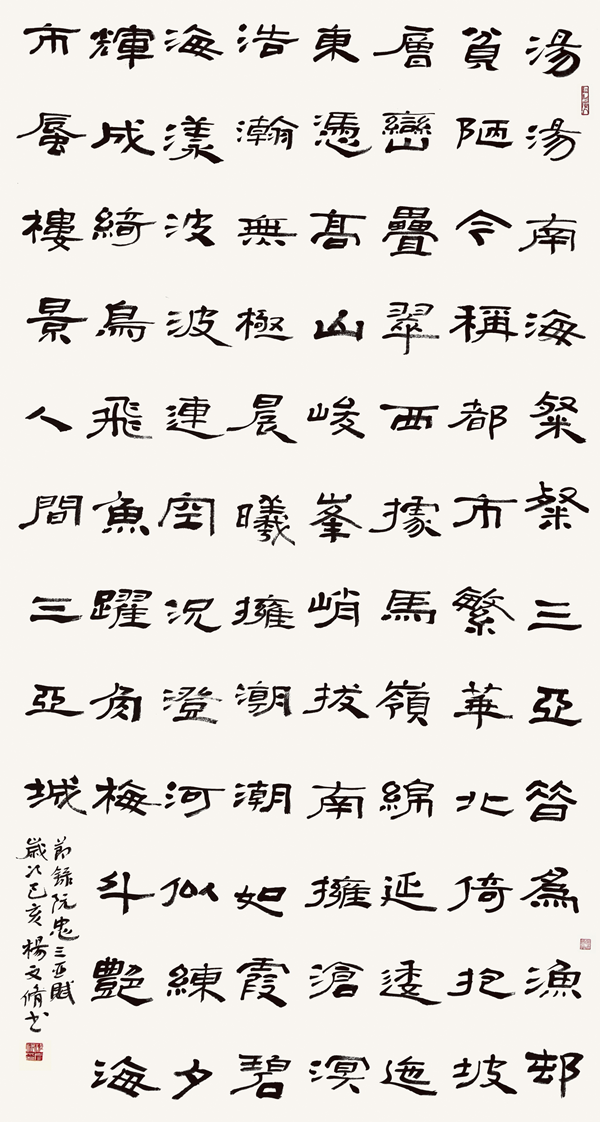 湯湯南海粲粲三亞昔爲漁邨
貧陋今稱都市繁華北倚抱坡
層巒疊翠西據馬嶺綿延逶迤
東憑高山峻峯峭拔南擁滄溟
浩瀚無極晨曦擁潮潮如霞碧
海漾波波連空況澄河似練夕
輝成綺鳥飛魚躍角梅斗艷海
市蜃樓景人間三亞城
節錄阮忠三亞賦
歲次己亥楊文脩書